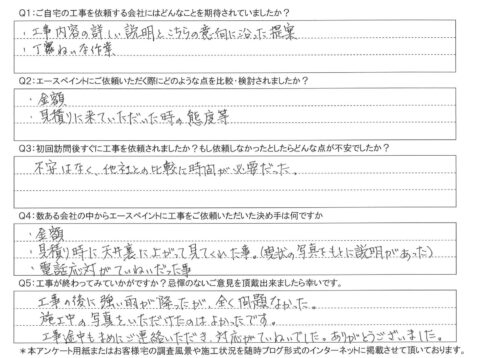 Q1:ご自宅の工事を依頼する会社にはどんなことを期待されていましたか?
・工事内容の詳しい説明とこちらの意向に沿った提案
・丁寧ねいな作業
Q2:エースペイントにご依頼いただく際にどのような点を比較・検討されましたか?
・金額
・見積りに来ていただいた時の態度等
Q3:初回訪問後すぐに工事を依頼されましたか?もし依頼しなかったとしたらどんな点が不安でしたか?
不安はなく、他社との比較に時間が必要だった。
Q4:数ある会社の中からエースペイントに工事をご依頼いただいた決め手は何ですか
・金額
・見積り時に天井裏によがって見てくれた事。(現状の写真をもとに説明があった)
・電話応対がていねいだった事
Q5:工事が終わってみていかがですか?忌憚のないご意見を頂戴出来ましたら幸いです。
工事の後に強い雨が降ったが、全く問題なかった。
施工中の写真をいただけたのはよかったです。
工事途中もまめにご連絡いただき、対応がていねいでした。ありがとうございました。
*本アンケート用紙またはお客様宅の調査風景や施工状況を随時ブログ形式のインターネットに掲載させて頂いております。